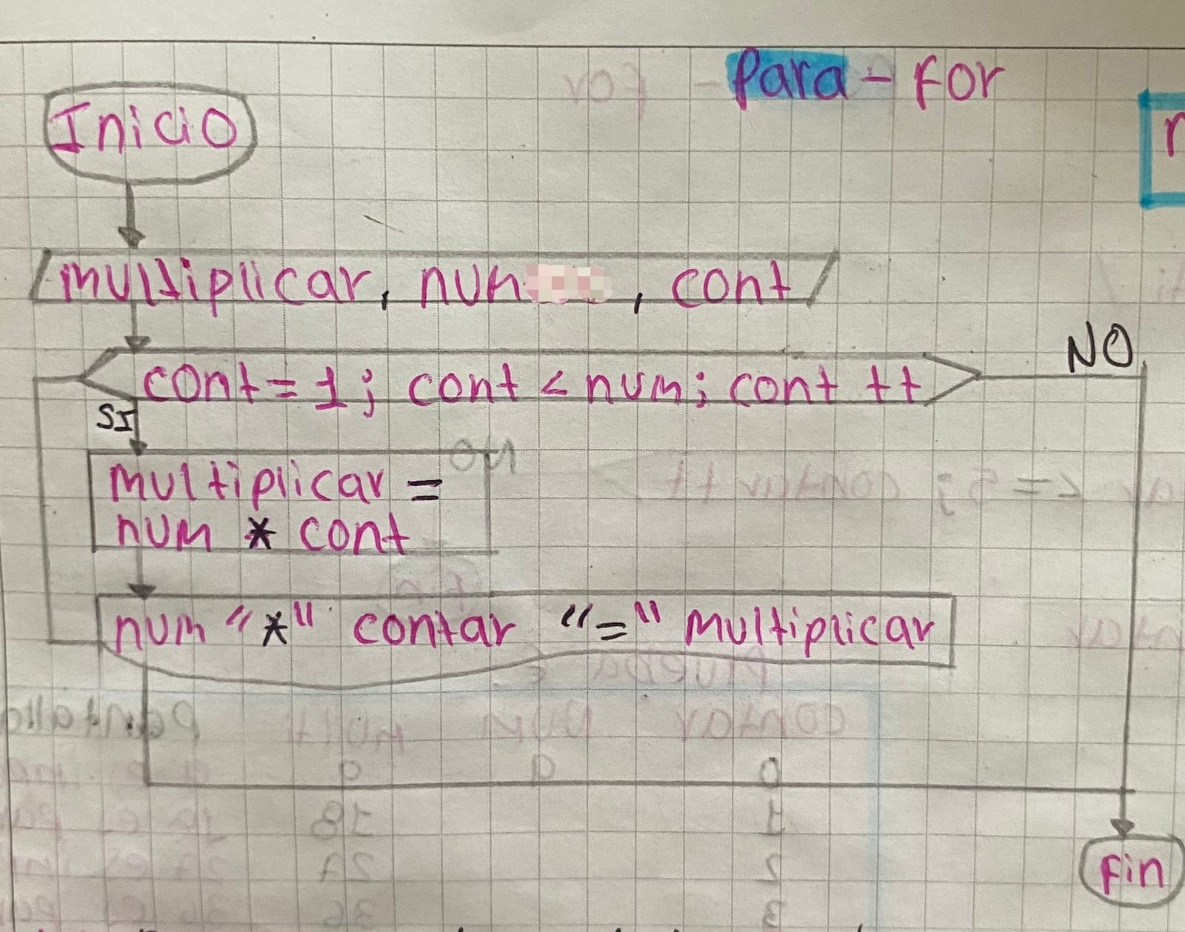 Para - For
Inicio
multiplicar, num , cont
NO
cont = 1; cont < num; cont ++
SI
multiplicar =
num * cont
num "*" contar "=" multiplicar
Fin